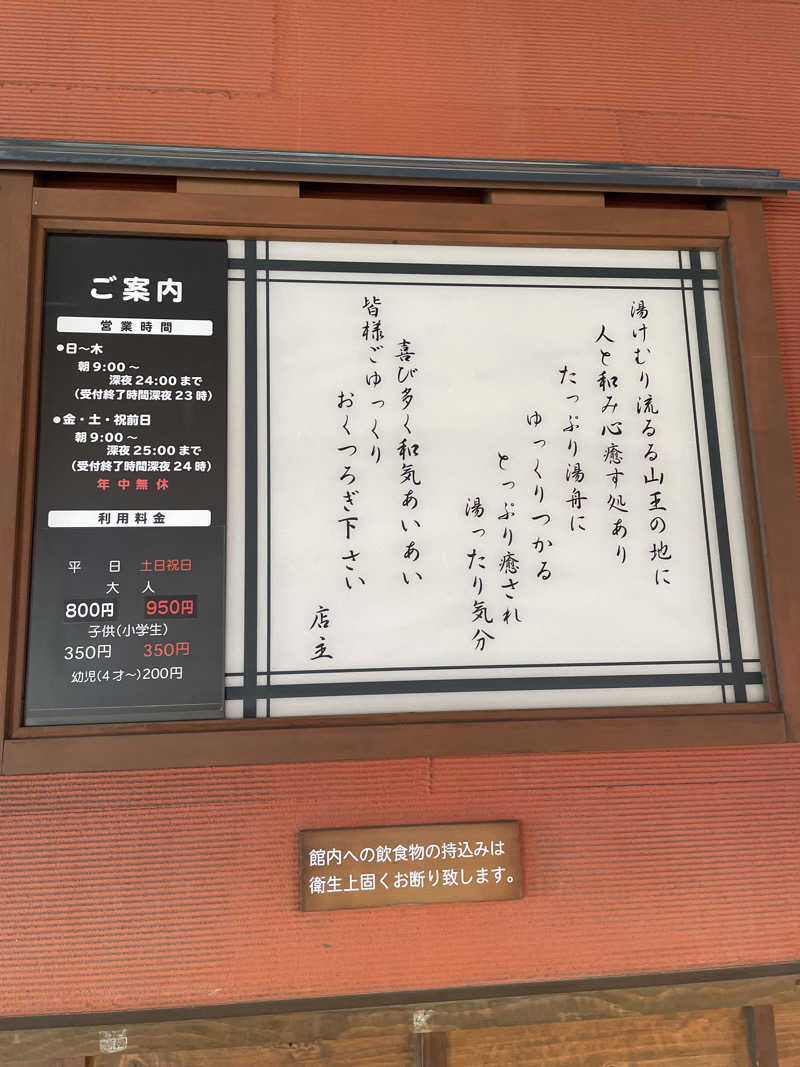 ご案内
営業時間
●日〜木
朝9:00〜
深夜24:00まで
(受付終了時間深夜23時)
●金・土・祝前日
朝9:00〜
深夜25:00まで
(受付終了時間深夜24時)
年中無休
利用料金
平日 土日祝日
大人
800円 950円
子供(小学生)
350円 350円
幼児(4才〜)200円
湯けむり流るる山王の地に
人と和み心癒す処あり
たっぷり湯舟に
ゆっくりつかる
とっぷり癒され
湯ったり気分
喜び多く和気あいあい
皆様ごゆっくり
おくつろぎ下さい
店主
館内への飲食物の持込みは
衛生上固くお断り致します。